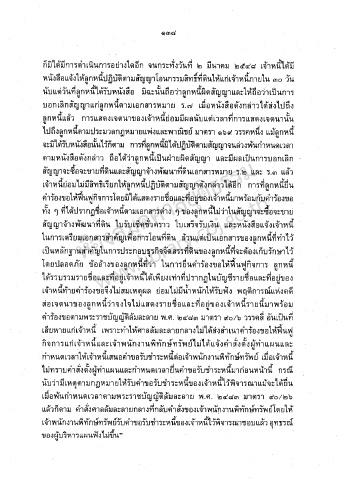 ๑๓๘
ก็มิได้มีการดำเนินการอย่างใดอีก จนกระทั่งวันที่ ๒ มีนาคม ๒๕๔๘ เจ้าหนี้ได้มี
หนังสือแจ้งให้ลูกหนี้ปฏิบัติตามสัญญาโอนกรรมสิทธิ์ที่ดินให้แก่เจ้าหนี้ภายใน ๓๐ วัน
นับแต่วันที่ลูกหนี้ได้รับหนังสือ มิฉะนั้นถือว่าลูกหนี้ผิดสัญญาและให้ถือว่าเป็นการ
บอกเลิกสัญญาแก่ลูกหนี้ตามเอกสารหมาย ร.๗ เมื่อหนังสือดังกล่าวได้ส่งไปถึง
ลูกหนี้แล้ว การแสดงเจตนาของเจ้าหนี้ย่อมมีผลนับแต่เวลาที่การแสดงเจตนานั้น
ไปถึงลูกหนี้ตามประมวลกฎหมายแพ่งและพาณิชย์ มาตรา ๑๖๙ วรรคหนึ่ง แม้ลูกหนี้
จะมิได้รับหนังสือนั้นไว้ก็ตาม การที่ลูกหนี้มิได้ปฏิบัติตามสัญญาจนล่วงพ้นกำหนดเวลา
ตามหนังสือดังกล่าว ถือได้ว่าลูกหนี้เป็นฝ่ายผิดสัญญา และมีผลเป็นการบอกเลิก
สัญญาจะซื้อจะขายที่ดินและสัญญาจ้างพัฒนาที่ดินเอกสารหมาย ร.๒ และ ร.๓ แล้ว
เจ้าหนี้ย่อมไม่มีสิทธิเรียกให้ลูกหนี้ปฏิบัติตามสัญญาดังกล่าวได้อีก การที่ลูกหนี้ยื่น
คำร้องขอให้ฟื้นฟูกิจการโดยมิได้แสดงรายชื่อและที่อยู่ของเจ้าหนี้มาพร้อมกับคำร้องขอ
ทั้ง ๆ ที่ได้ปรากฏชื่อเจ้าหนี้ตามเอกสารต่าง ๆ ของลูกหนี้ไม่ว่าในสัญญาจะซื้อจะขาย
สัญญาจ้างพัฒนาที่ดิน ใบรับเงินชั่วคราว ใบเสร็จรับเงิน และหนังสือแจ้งเจ้าหนี้
ในการเตรียมเอกสารสำคัญเพื่อการโอนที่ดิน ล้วนแต่เป็นเอกสารของลูกหนี้ที่ทำไว้
เป็นหลักฐานสำคัญในการประกอบธุรกิจจัดสรรที่ดินของลูกหนี้ที่จะต้องเก็บรักษาไว้
โดยปลอดภัย ข้ออ้างของลูกหนี้ที่ว่า ในการยื่นคำร้องขอให้ฟื้นฟูกิจการ ลูกหนี้
ได้รวบรวมรายชื่อและที่อยู่เจ้าหนี้ได้เพียงเท่าที่ปรากฏในบัญชีรายชื่อและที่อยู่ของ
เจ้าหนี้ท้ายคำร้องขอจึงไม่สมเหตุผล ย่อมไม่มีน้ำหนักให้รับฟัง พฤติการณ์แห่งคดี
ส่อเจตนาของลูกหนี้ว่าจงใจไม่แสดงรายชื่อและที่อยู่ของเจ้าหนี้รายนี้มาพร้อม
คำร้องขอตามพระราชบัญญัติล้มละลาย พ.ศ. ๒๔๘๓ มาตรา ๙๐/๖ วรรคสี่ อันเป็นที่
เสียหายแก่เจ้าหนี้ เพราะทำให้ศาลล้มละลายกลางไม่ได้ส่งสำเนาคำร้องขอให้ฟื้นฟู
กิจการแก่เจ้าหนี้และเจ้าพนักงานพิทักษ์ทรัพย์ไม่ได้แจ้งคำสั่งตั้งผู้ทำแผนและ
กำหนดเวลาให้เจ้าหนี้เสนอคำขอรับชำระหนี้ต่อเจ้าพนักงานพิทักษ์ทรัพย์ เมื่อเจ้าหนี้
ไม่ทราบคำสั่งตั้งผู้ทำแผนและกำหนดเวลายื่นคำขอรับชำระหนี้มาก่อนหน้านี้ กรณี
นับว่ามีเหตุตามกฎหมายให้รับคำขอรับชำระหนี้ของเจ้าหนี้ไว้พิจารณาแม้จะได้ยื่น
เมื่อพ้นกำหนดเวลาตามพระราชบัญญัติล้มละลาย พ.ศ. ๒๔๘๓ มาตรา ๙๐/๒๖
แล้วก็ตาม คำสั่งศาลล้มละลายกลางที่กลับคำสั่งของเจ้าพนักงานพิทักษ์ทรัพย์โดยให้
เจ้าพนักงานพิทักษ์ทรัพย์รับคำขอรับชำระหนี้ของเจ้าหนี้ไว้พิจารณาชอบแล้ว อุทธรณ์
ของผู้บริหารแผนฟังไม่ขึ้น"